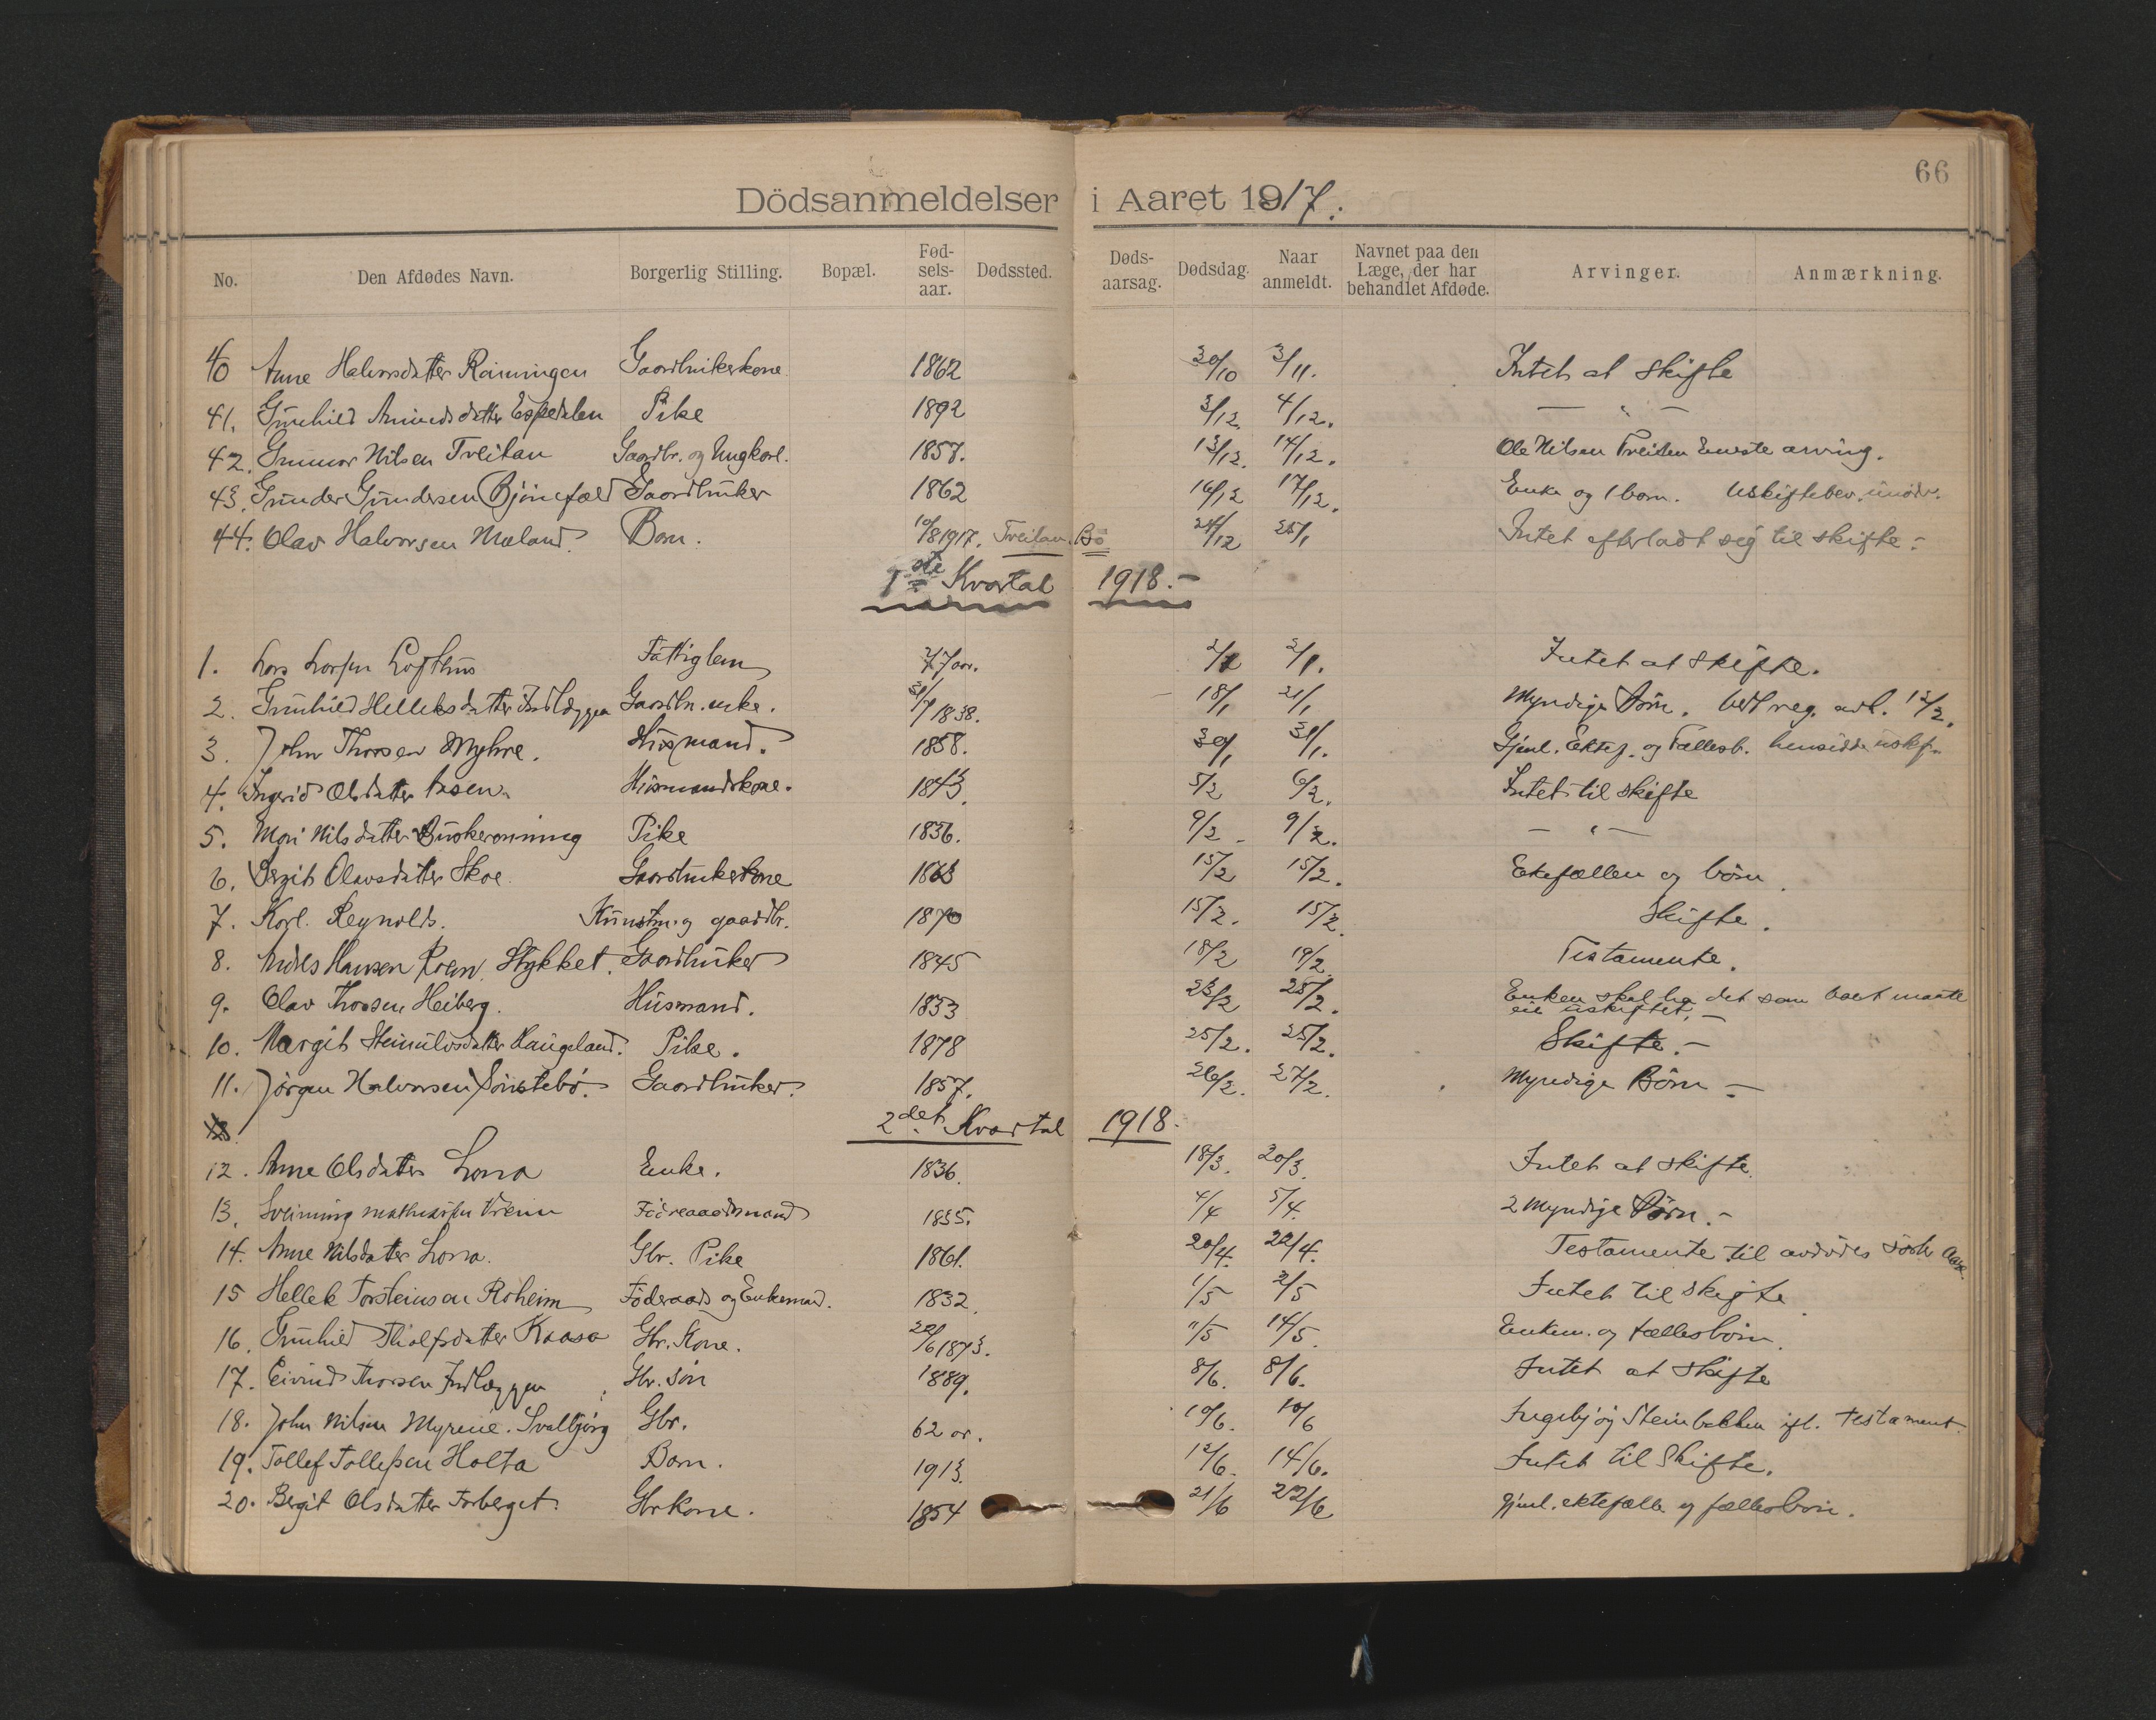 66
Dödsanmeldelser i Aaret 1917.
No. Den Afdødes Navn. Borgerlig Stilling. Bopæl. Fød-sels-aar. Dødssted. Døds-aarsag. Dødsdag. Naar anmeldt. Navnet paa den Læge, der har behandlet Afdøde. Arvinger. Anmærkning.
40 Anne Halvorsdatter Rønningen Gaardbrukerkone 1862 30/10 3/11. Intet at skifte
41. Gunhild Amundsdatter Espedalen Pike 1892 3/12. 4/12. — " —
42. Gunnar Nilsen Treitan Gaardbr. og Ungkarl. 1857. 13/12. 14/12. Ole Nilsen Treitan Eneste arving.
43. Gunder Gundersen Bjönefald Gaardbruker 1862 16/12 17/12. Enke og 1 barn. Uskiftebev.
44. Olav Halvorsen Mæland. Barn. 10/8 1917. Treitan. Bö 24/12 25/1 Intet efterladt sig til skifte.
1ste Kvartal 1918.—
1. Lars Larsen Lofthus Fattiglem 77 aar. 2/1 2/1. Intet at skifte.
2. Gunhild Helleksdatter Indlæggen Gaardbr. enke. 31/7 1838. 18/1 21/1 Myndige Börn. 12/2.
3. John Thorsen Myhre. Husmand. 1858. 30/1 31/1. Gjenl. Ektef. og Fællesb.
4. Ingerid Olsdatter Aasen. Husmandskone. 1843. 5/2 6/2. Intet til skifte
5. Mari Nilsdatter Buskerønning Pike 1836. 9/2. 9/2. — " —
6. Bergit Olavsdatter Skoe. Gaardbrukerkone 1863 15/2 15/2. Ektefællen og börn.
7. Karl. Reynolds. Kunstm. og gaardbr. 1870 15/2. 15/2. Skifte.
8. Anders Hansen Roen. Stykket. Gaardbruker 1845 18/2 19/2. Testamente.
9. Olav Thorsen Heiberg. Husmand. 1833 23/2 25/2. Enken skal ha det som boet maatte
eie uskiftet.—
10. Margit Steinulvsdatter Haugeland. Pike. 1878 25/2. 25/2. Skifte.—
11. Jörgen Halvorsen Sönstebö. Gaardbruker. 1857. 26/2. 27/2. Myndige Börn —
2det Kvartal 1918.
12. Anne Olsdatter Lona Enke. 1836. 18/3. 20/3. Intet at skifte.
13. Sveinung Föderaadsmand 1835. 4/4 5/4. 2 Myndige Börn.—
14. Anne Nilsdatter Lona. Gbr. Pike 1861. 20/4. 22/4. Testamente til avdödes
15 Hellek Torsteinsen Roheim Föderaads og Enkemand. 1832. 1/5 2/5 Intet til skifte.
16. Gunhild Thiolfsdatter Kaasa Gbr. Kone. 20/6 1873. 11/5 14/5. Enkem. og fællesbörn.
17. Eivind Thorsen Indlæggen Gbr. Sön 1889. 8/6. 8/6. Intet at skifte
18. John Nilsen Myrene. Svalbjörg Gbr. 62 aar. 10/6. 10/6 Ingebjörg Steinbakken ifl. testament.
19. Tollef Tollefsen Holta Barn. 1913. 12/6. 14/6. Intet til Skifte.
20. Bergit Olsdatter Forberget. Gbr Kone. 1854 21/6 22/6 Gjenl. ektefælle og fællesbörn.